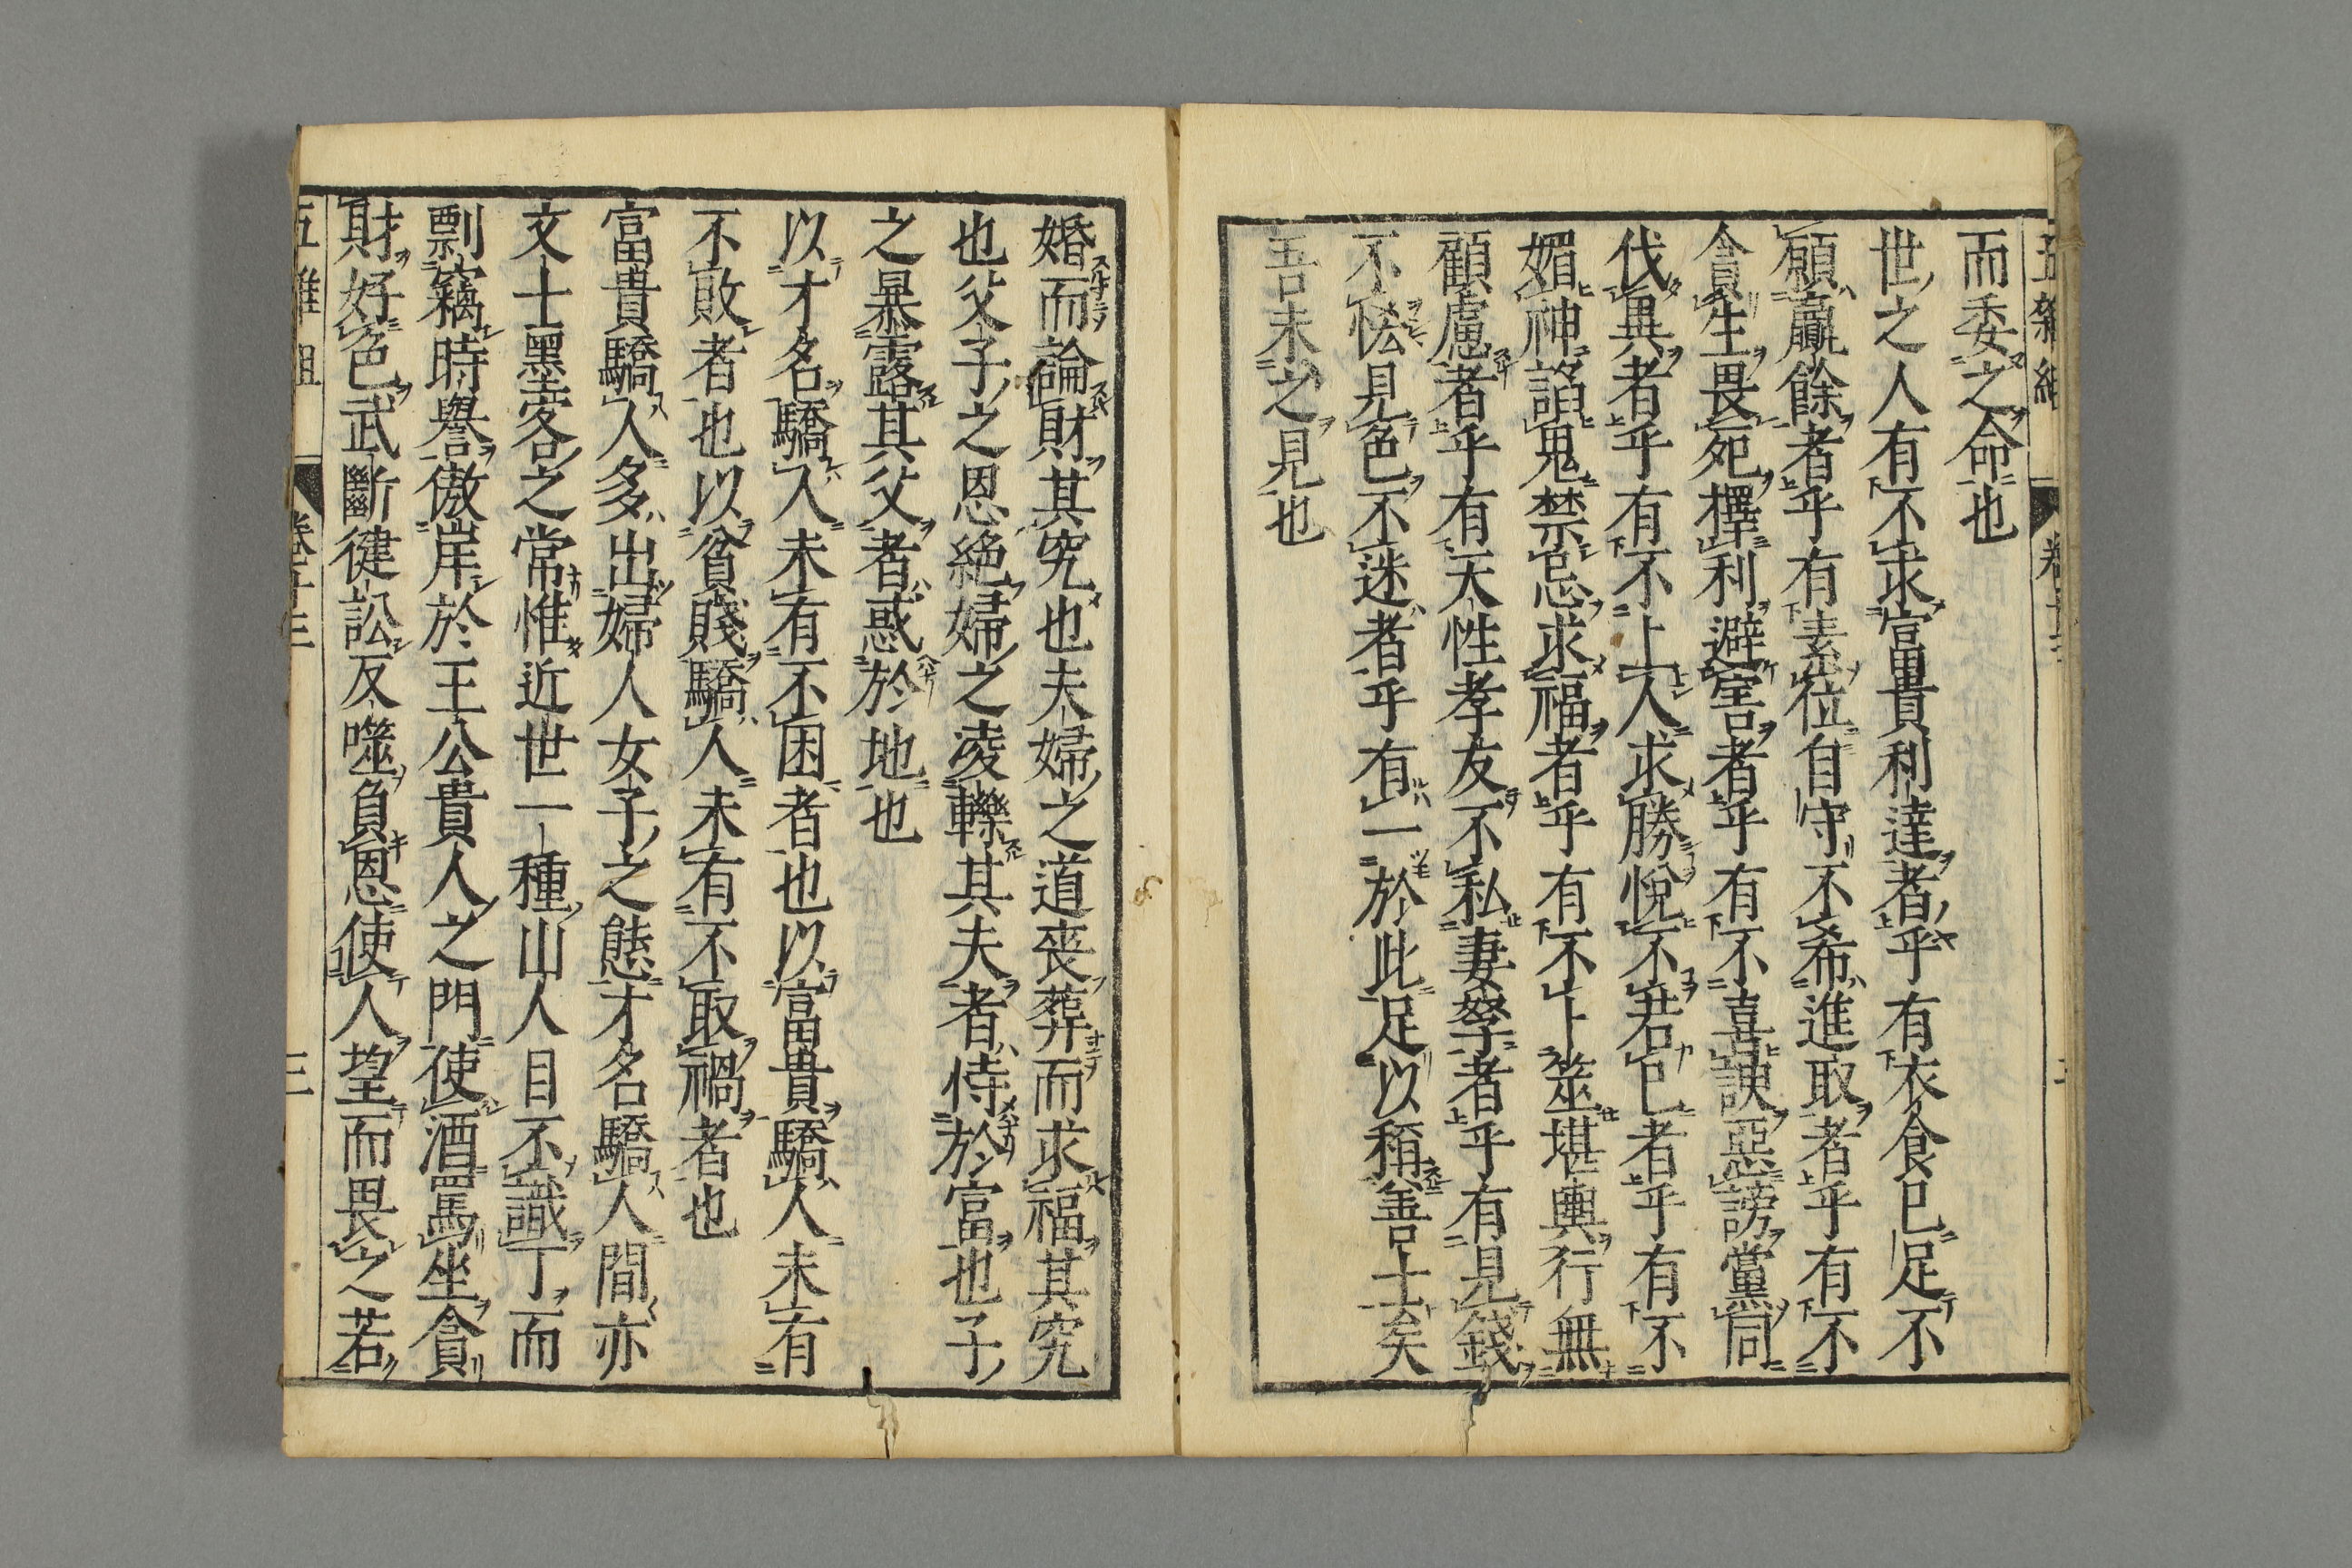 而委之命也
世之人有不求富貴利達者乎有衣食已足不
願羸餘者乎有素位自守不希進取者乎有不
貪生畏死擇利避害者乎有不喜諛惡謗黨同
伐異者乎有不上人求勝悅不若己者乎有不
媚神諂鬼禁忌求福者乎有不卜筮堪輿行無
顧慮者乎有天性孝友不私妻孥者乎有見錢
不恡見色不迷者乎有一於此足以稱善士矣
吾未之見也
婚而論財其究也夫婦之道喪葬而求福其究
也父子之恩絶婦之凌轢其夫者侍於富也子
之暴露其父者惑於地也
以才名驕人未有不困者也以富貴驕人未有
不敗者也以貧賤驕人未有不取禍者也
富貴驕人多出婦人女子之態才名驕人間亦
文士墨客之常惟近世一種山人目不識丁而
剽竊時譽傲岸於王公貴人之門使酒罵坐貪
財好色武斷健訟反噬負恩使人望而畏之若
五雜組
卷十三
三